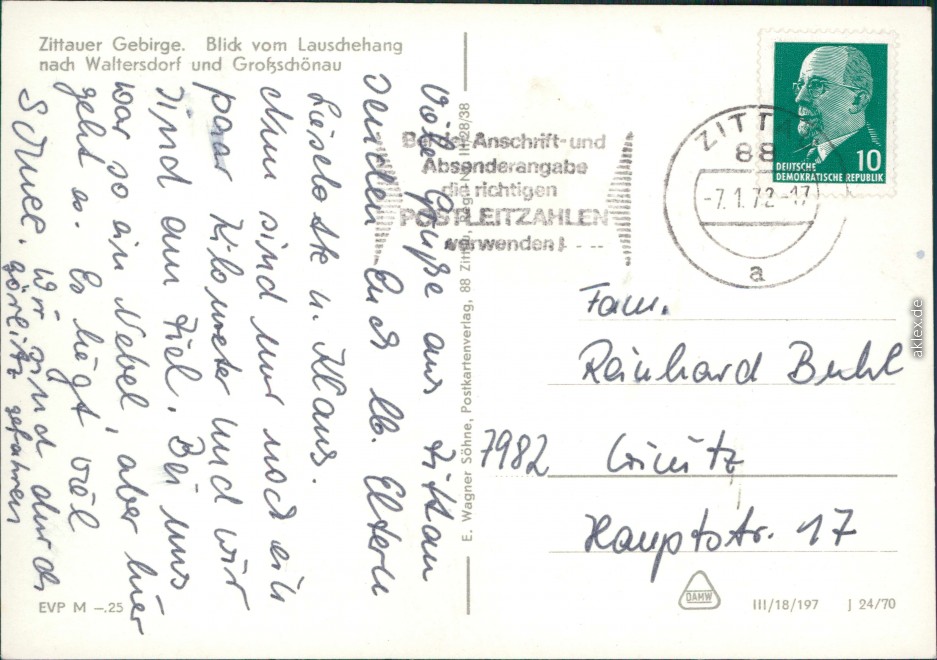 Zittauer Gebirge. Blick vom Lauschehang
nach Waltersdorf und Großschönau
Viele Grüße aus Zittau
senden Euch lb. Eltern
Liselotte u. Klaus.
Nun sind nur noch ein
paar Kilometer und wir
sind am Ziel. Bei uns
war so ein Nebel, aber hier
geht es. Es liegt viel
Schnee. Wir sind durch
Görlitz gefahren
EVP M –.25
E. Wagner Söhne, Postkartenverlag, 88 Zittau, Reg.-Nr. III/28/38
Bei der Anschrift- und
Absenderangabe
die richtigen
POSTLEITZAHLEN
verwenden!
ZITTAU
88
-7.1.72-17
a
10
DEUTSCHE
DEMOKRATISCHE REPUBLIK
Fam.
Reinhard Buhl
7982
Hauptstr. 17
DAMW
III/18/197 J 24/70
aklex.de